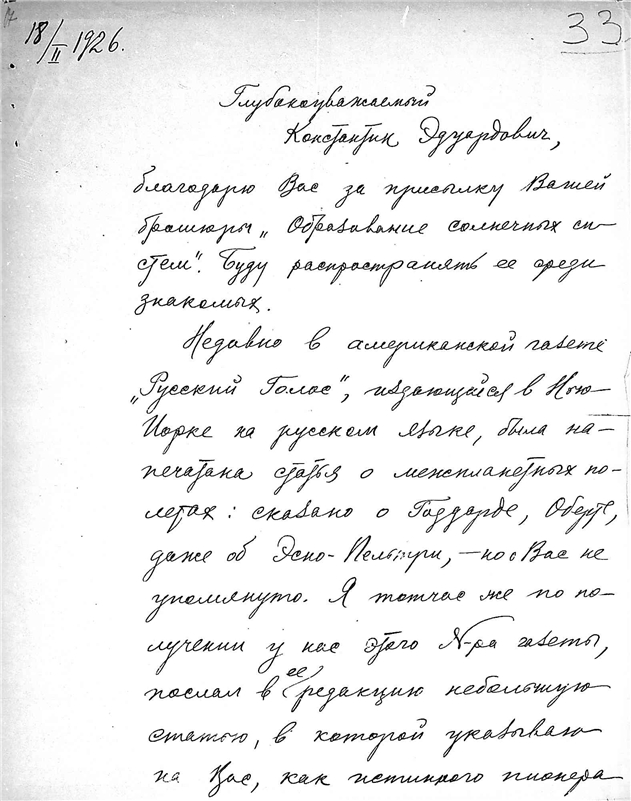 17
18/II 1926.
33
Глубокоуважаемый
Константин Эдуардович,
благодарю Вас за присылку Вашей
брошюры „Образование солнечных си-
стем". Буду распространять ее среди
знакомых.
Недавно в американской газете
„Русский Голос", издающейся в Нью-
Иорке на русском языке, была на-
печатана статья о межпланетных по-
летах: сказано о Годдарде, Оберте,
даже об Эсно-Пельтри, – но о Вас не
упомянуто. Я тотчас же по по-
лучении у нас этого N-ра газеты,
послал в ее редакцию небольшую
статью, в которой указываю
на Вас, как истинного пионера